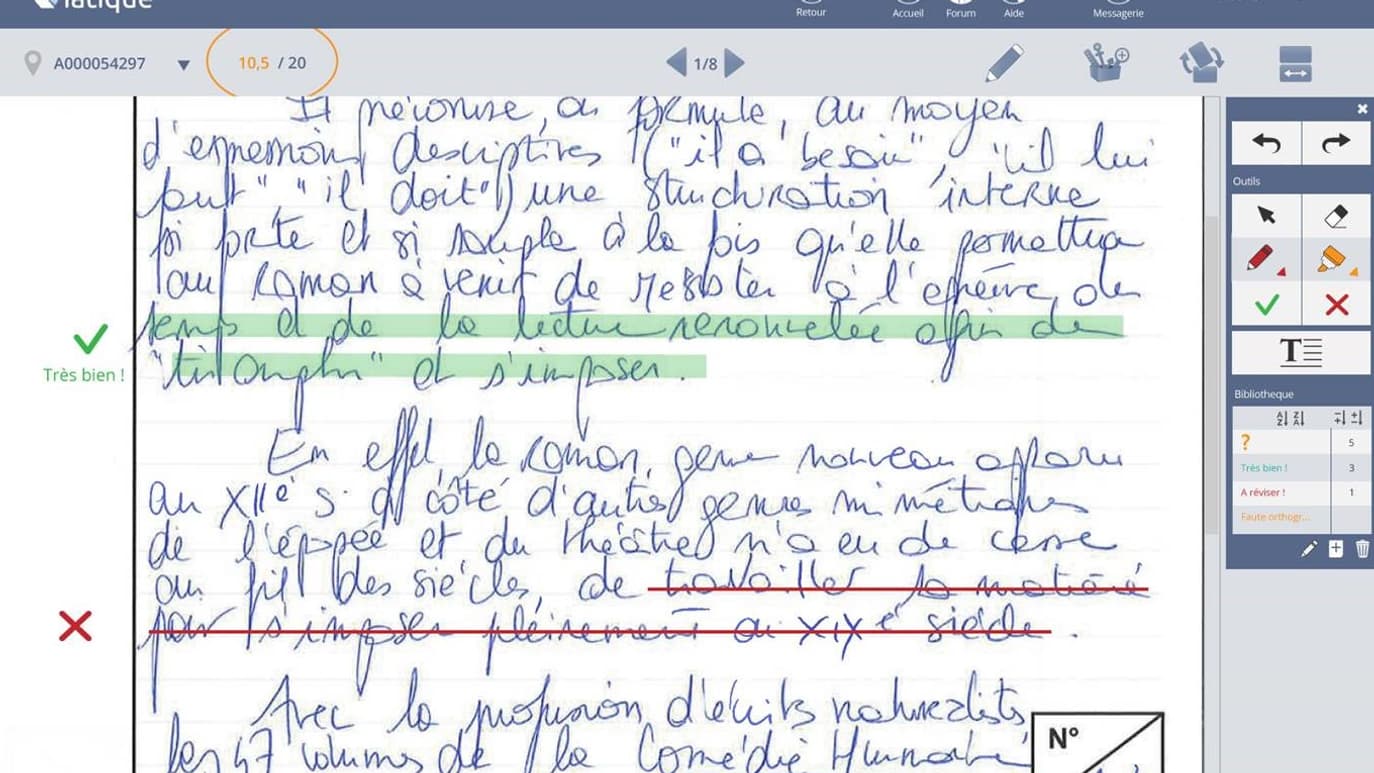 latique
Retour
Accueil
Forum
Aide
Messagerie
A000054297
10,5 / 20
1/8
Il préconise, en formule, au moyen
d'expressions descriptives ("il a besoin", "il lui
faut" "il doit") une structuration interne
si forte et si souple à la fois qu'elle permettra
au roman à venir de résister à l'épreuve du
temps et de la lecture renouvelée afin de
"triompher" et s'imposer.
Très bien !
En effet, le roman, genre nouveau apparu
au XIIe s. à côté d'autres genres mimétiques
de l'épopée et du théâtre n'a eu de cesse
au fil des siècles, de travailler sa matière
pour s'imposer pleinement au XIXe siècle.
Avec la profusion d'écrits naturalistes
les 47 volumes de la Comédie Humaine
N°
Outils
T
Bibliotheque
? 5
Très bien ! 3
A réviser ! 1
Faute orthogr...